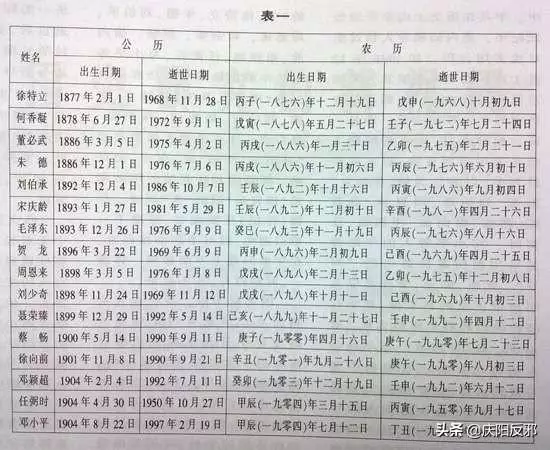 表一
姓名 公历 农历
出生日期 逝世日期 出生日期 逝世日期
徐特立 1877年2月1日 1968年11月28日 丙子(一八七六)年十二月十九日 戊申(一九六八)十月初九日
何香凝 1878年6月27日 1972年9月1日 戊寅(一八七八)年五月二十七日 壬子(一九七二)年七月二十四日
董必武 1886年3月5日 1975年4月2日 丙戌(一八八六)年一月三十日 乙卯(一九七五)年二月二十一日
朱德 1886年12月1日 1976年7月6日 丙戌(一八八六)年十一月初六日 丙辰(一九七六)年六月初十日
刘伯承 1892年12月4日 1986年10月7日 壬辰(一八九二)年十月十六日 丙寅(一九八六)年九月初四日
宋庆龄 1893年1月27日 1981年5月29日 壬辰(一八九二)年十二月初十日 辛酉(一九八一)年四月二十六日
毛泽东 1893年12月26日 1976年9月9日 癸巳(一八九三)年十一月十九日 丙辰(一九七六)年八月十六日
贺龙 1896年3月22日 1969年6月9日 丙申(一八九六)年二月初九日 己酉(一九六九)年四月二十五日
周恩来 1898年3月5日 1976年1月8日 戊戌(一八九八)年二月十三日 乙卯(一九七五)年十二月初八日
刘少奇 1898年11月24日 1969年11月12日 戊戌(一八九八)年十月十一日 己酉(一九六九)年十月初三日
聂荣臻 1899年12月29日 1992年5月14日 己亥(一八九九)年十一月二十七日 壬申(一九九二)年四月十二日
蔡畅 1900年5月14日 1990年9月11日 庚子(一九〇〇)年四月十六日 庚午(一九九〇)年七月二十三日
徐向前 1901年11月8日 1990年9月21日 辛丑(一九〇一)年九月二十八日 庚午(一九九〇)年八月初三日
邓颖超 1904年2月4日 1992年7月11日 癸卯(一九〇三)年十二月十九日 壬申(一九九二)年六月十二日
任弼时 1904年4月30日 1950年10月27日 甲辰(一九〇四)年三月十五日 丙寅(一九五〇)年九月十七日
邓小平 1904年8月22日 1997年2月19日 甲辰(一九〇四)年七月十二日 丁丑(一九
头条 @庆阳反邪